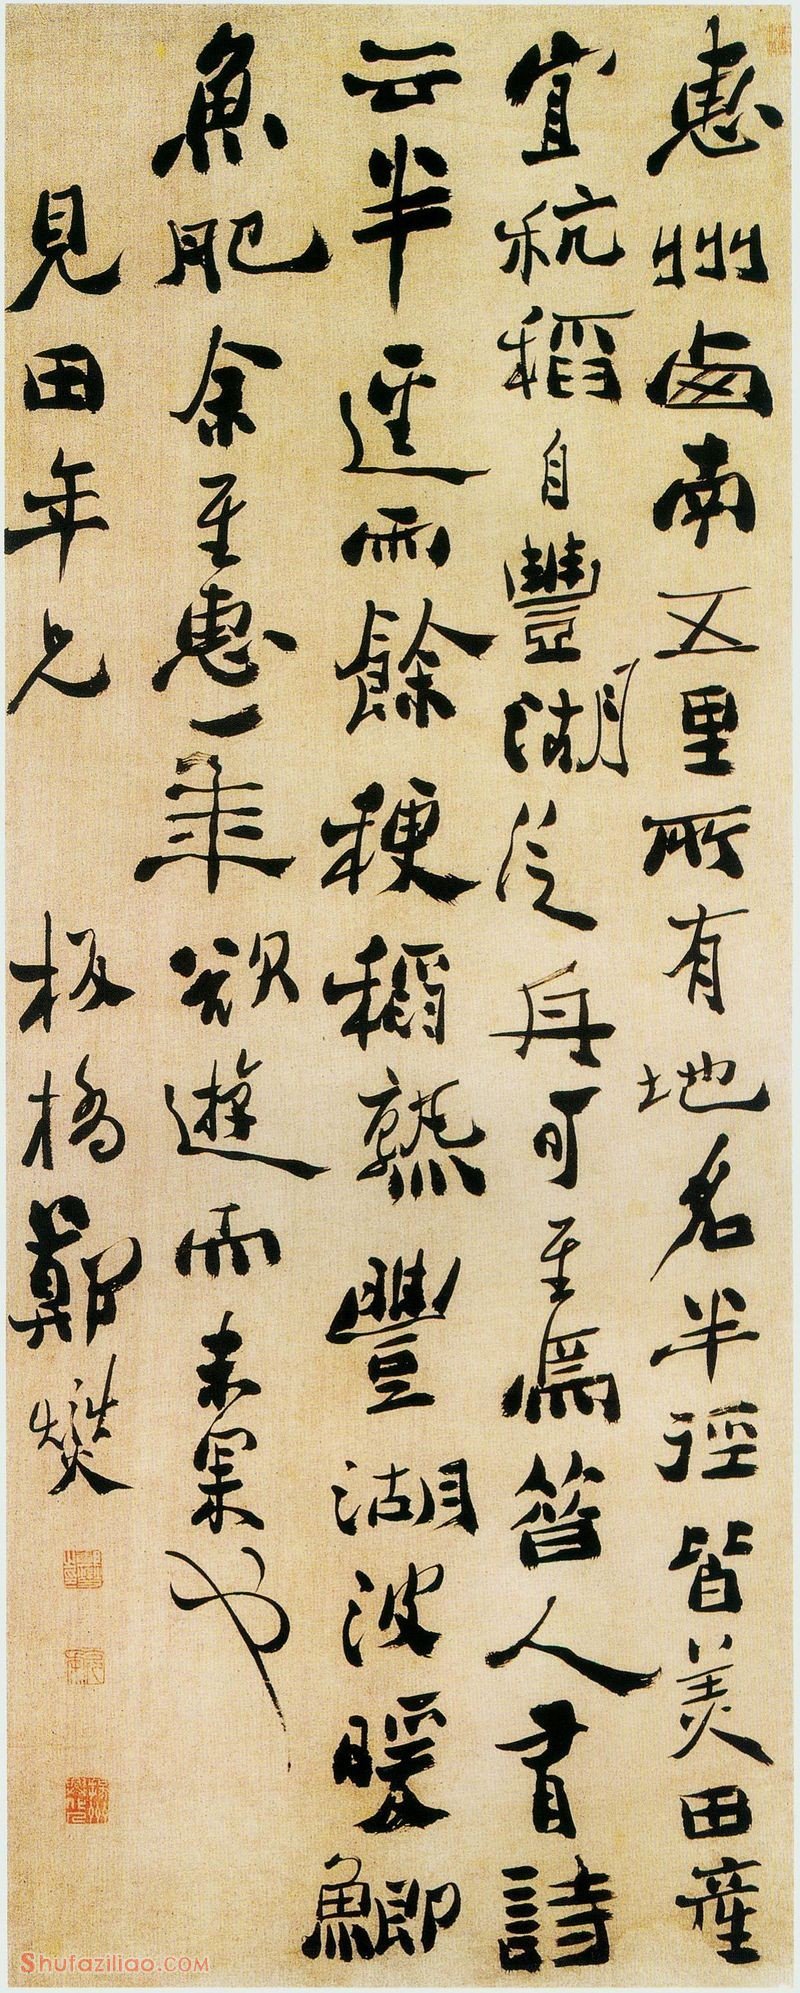 惠州鹵南五里所有地名半徑皆美田產
宜秔稻自豐湖泛舟可至焉昔人有詩
云半逕雨餘粳稻熟豐湖波暖鯽
魚肥余至惠一年欲遊而未果也
見田年兄 板橋鄭燮
Shufaziliao.COM